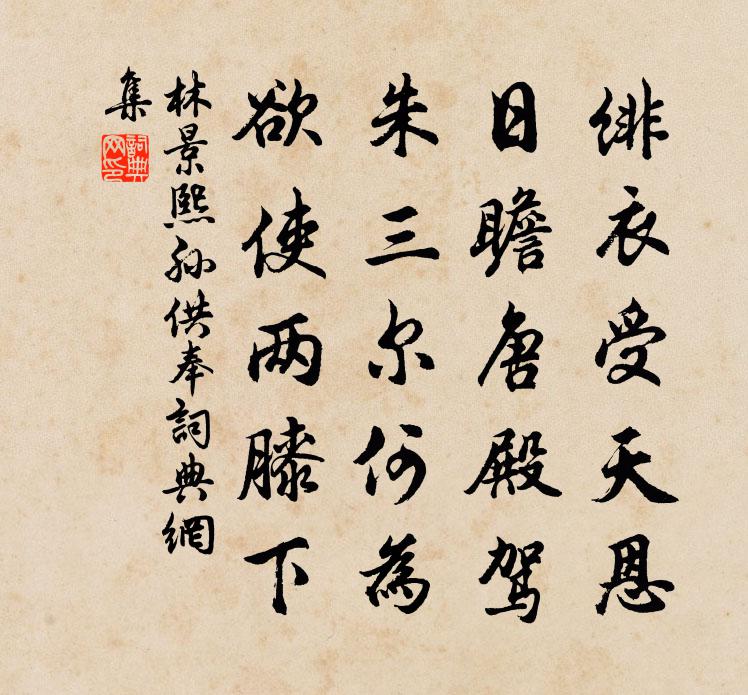 绯衣受天恩
日瞻唐殿驾
朱三尔何为
欲使两膝下
林景熙孙供奉詞典網
集
詞典
网印